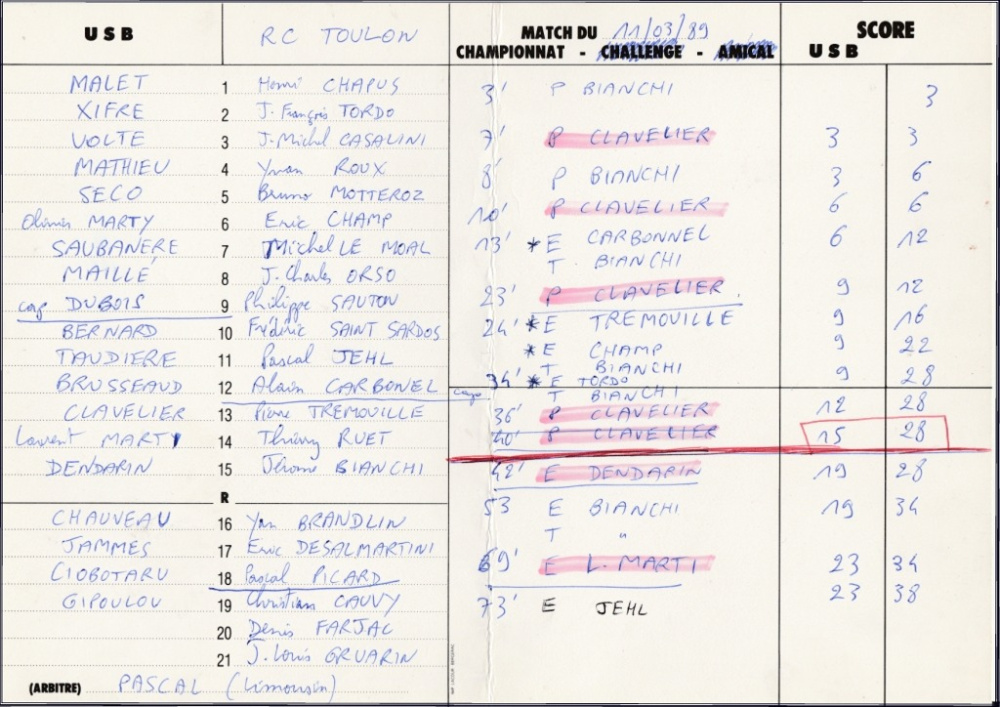 USB RC TOULON MATCH DU 11/03/89 SCORE
CHAMPIONNAT - CHALLENGE - AMICAL USB
MALET 1 Henri CHAPUS 3' P BIANCHI 3
XIFRE 2 J. François TORDO
VOLTE 3 J. Michel CASALINI 7' P CLAVELIER 3 3
MATHIEU 4 Yvan ROUX 8' P BIANCHI 3 6
SECO 5 Bruno MOTTEROZ
Olivier MARTY 6 Eric CHAMP 10' P CLAVELIER 6 6
SAUBANERE 7 Michel LE MOAL 13' * E CARBONNEL 6 12
T BIANCHI
MAILLÉ 8 J. Charles ORSO
cap DUBOIS 9 Philippe SAUTON 23' P CLAVELIER. 9 12
BERNARD 10 Frédéric SAINT SARDOS 24' * E TREMOUILLE 9 16
TAUDIERE 11 Pascal JEHL * E CHAMP 9 22
T BIANCHI
BRUSSEAUD 12 Alain CARBONEL cap 34' * E TORDO 9 28
T BIANCHI
CLAVELIER 13 Pierre TREMOUILLE 36' P CLAVELIER 12 28
Laurent MARTY 14 Thierry RUET 40' P CLAVELIER 15 28
DENDARIN 15 Jérome BIANCHI 42' E DENDARIN 19 28
R
53 E BIANCHI 19 34
T "
CHAUVEAU 16 Yan BRANDLIN
JAMMES 17 Eric DESALMARTINI
CIOBOTARU 18 Pascal PICARD 69' E L. MARTI 23 34
GIPOULOU 19 Christian CAUVY 73' E JEHL 23 38
20 Denis FARJAC
21 J. Louis GRUARIN
(ARBITRE) PASCAL (Limousin)